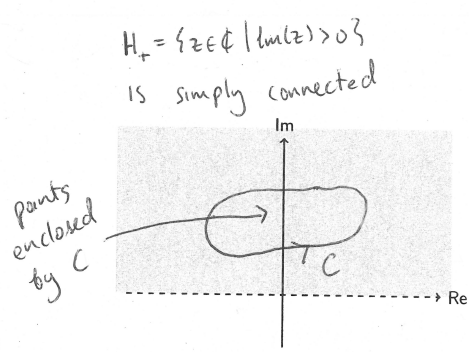 H₊ = {z∈ℂ | Im(z)>0}
is simply connected
Im
points
enclosed
by C
C
Re